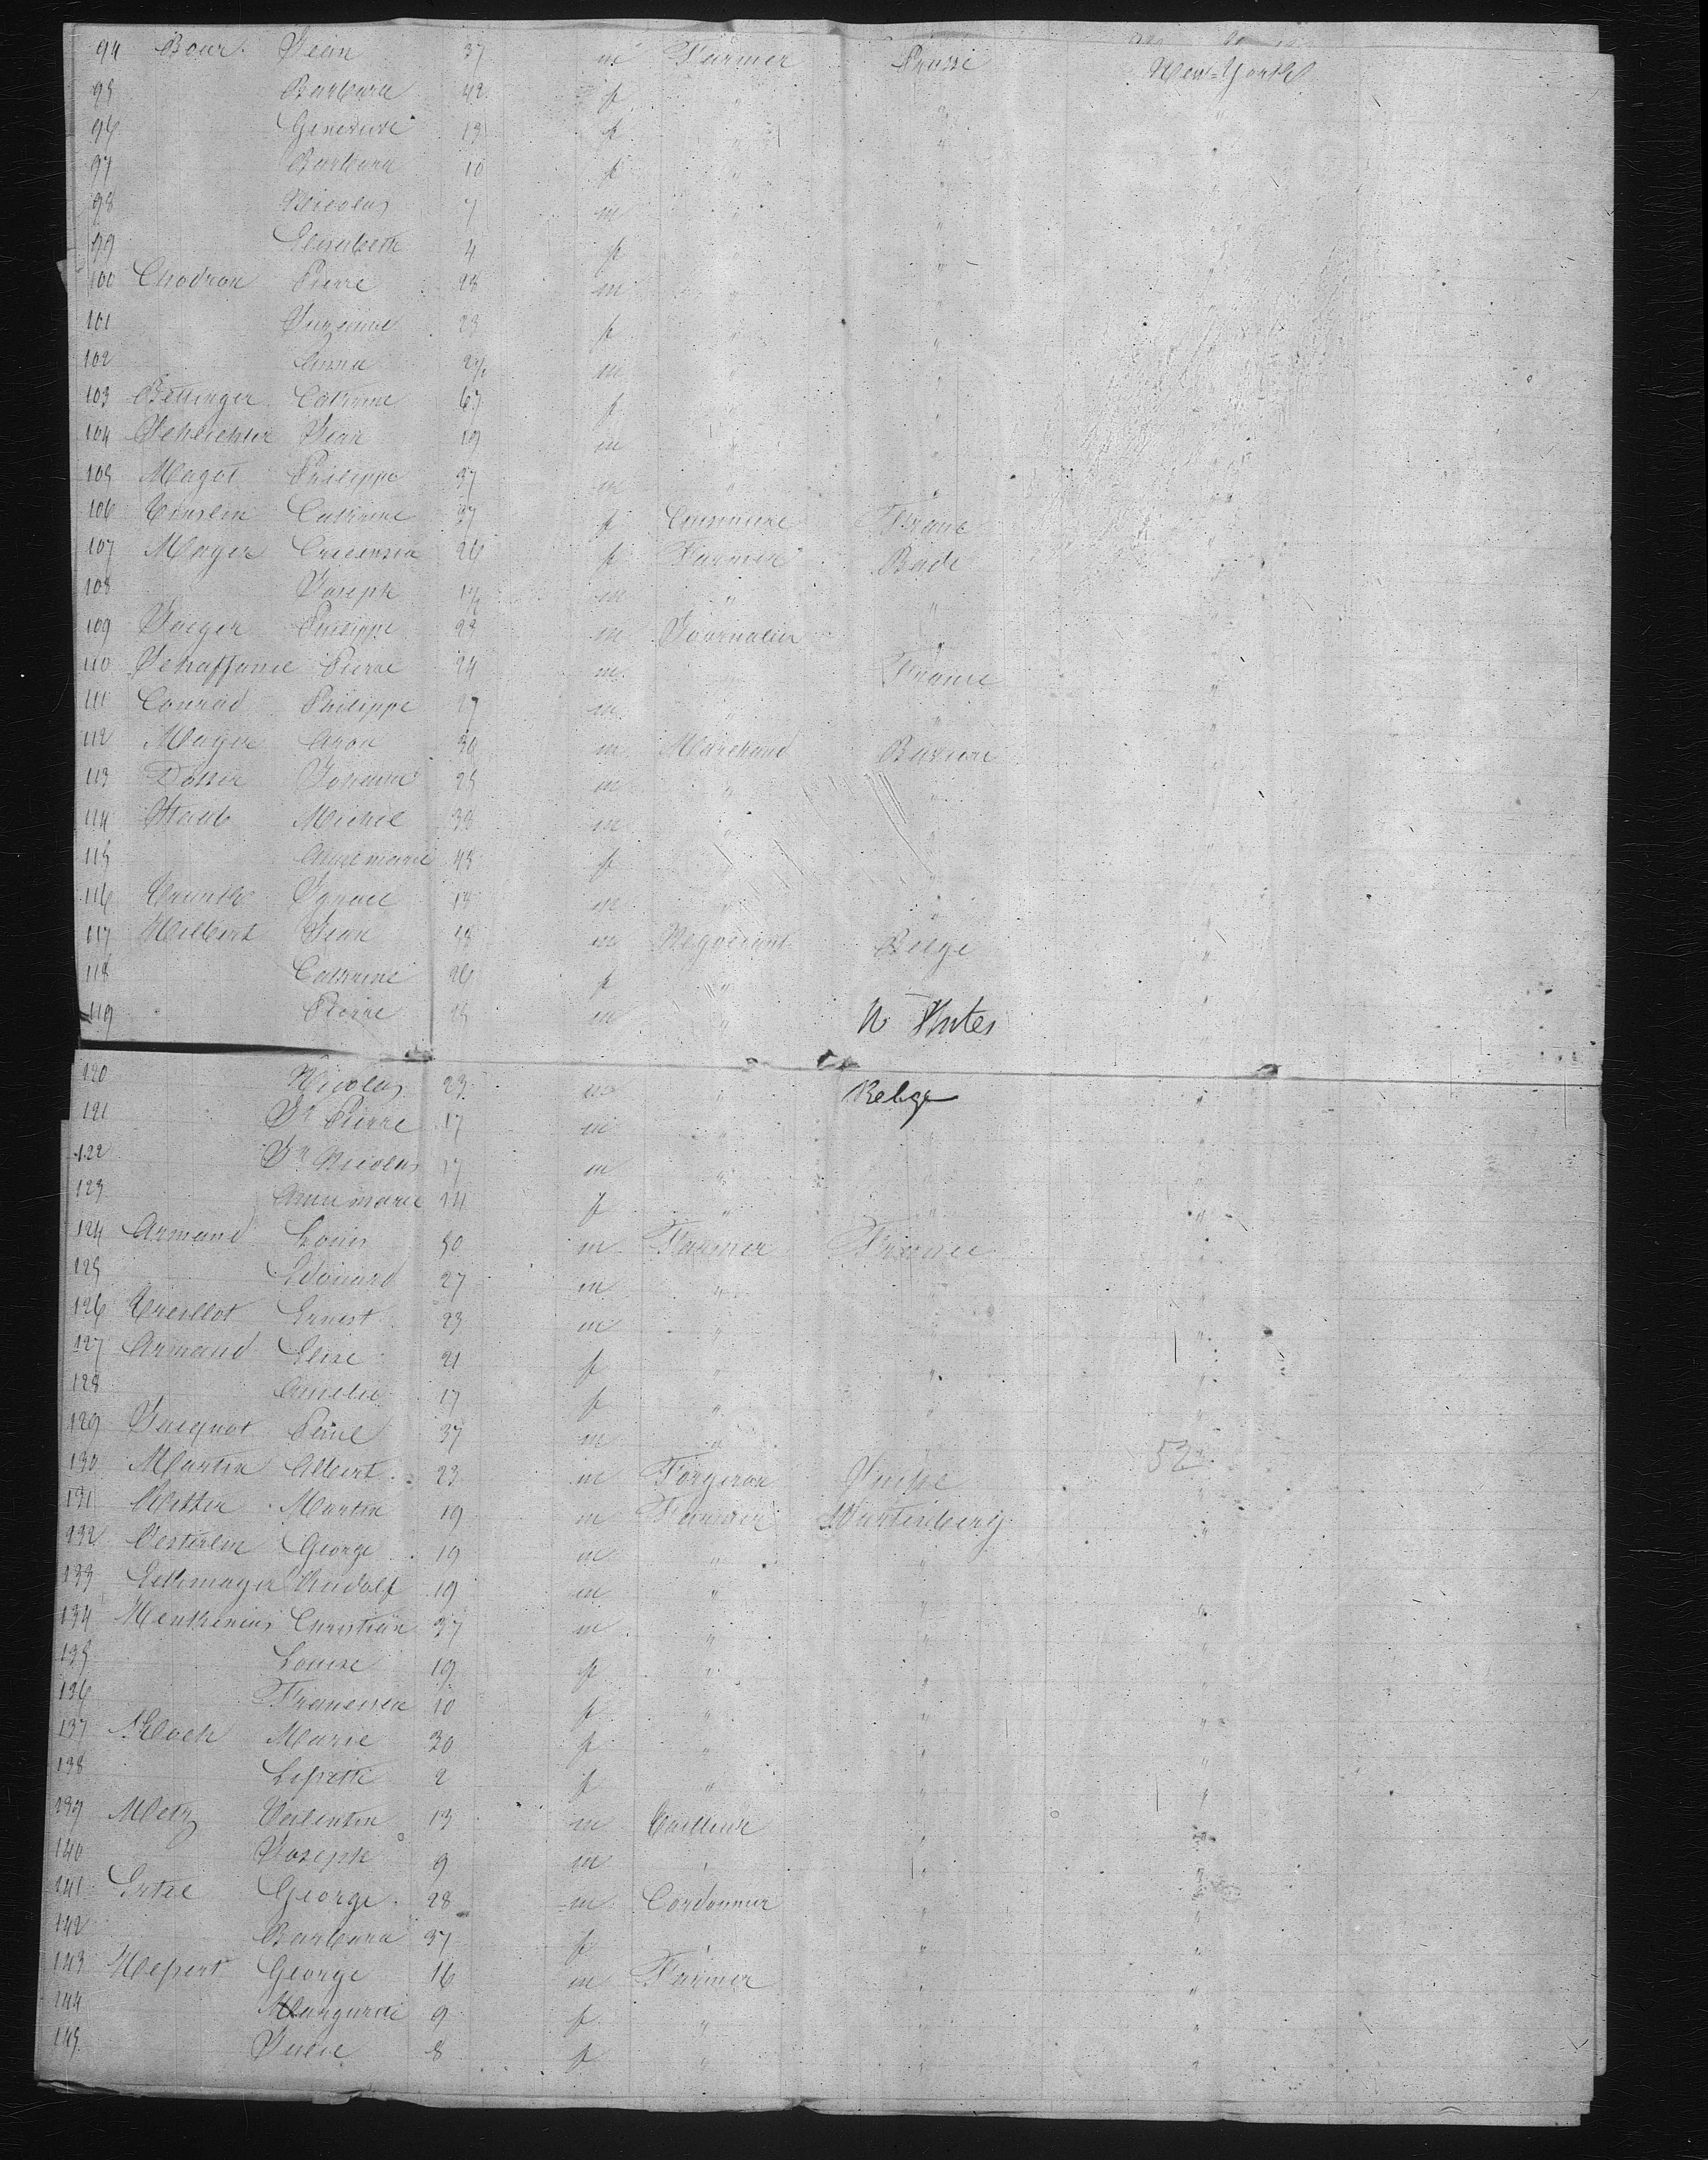 94 Bour Jean 37 m Farmer Prusse New-York
95 Barbara 42 f " " "
96 Genevieve 13 f " " "
97 Barbara 10 f " " "
98 Nicolas 7 m " " "
99 Elisabeth 4 f " " "
100 Chodron Pierre 28 m " " "
101 Suzanne 23 f " " "
102 Anna m " " "
103 Bettinger Catrine 67 f " " "
104 Schlichter Jean 19 m " " "
105 Magot Philippe 37 m " " "
106 Catherine 27 f "
107 Mayer 26 f Farmer Bade "
108 Joseph m " " "
109 Jaeger Philippe 22 m Journalier " "
110 Pierre 24 m " France "
111 Conrad Philippe 27 m " " "
112 Mayer Aron 30 m Marchand Baviere "
113 Johann 25 m " " "
114 Staub Michel 38 m " " "
115 Annemarie 45 f " " "
116 Ignace m " " "
117 Hilbert Jean m Negociant Belge "
118 Catherine 26 f " "
119 Pierre 25 m " "
120 Nicolas 23 m " Belge "
121 Jn Pierre 17 m " "
122 Jn Nicolas 17 m " "
123 Annemarie 14 f " " "
124 Armand Louis 50 m Farmer France "
125 Edouard 27 m " " "
126 Ernest 23 m " " "
127 Armand Elise 21 f " " "
128 Amelie 17 f " " "
129 Jacquot 37 m " "
53
130 Martin Albert 23 m Forgeron Suisse "
131 Martin 19 m Farmer Wurtemberg "
132 Oesterlin George 19 m " "
133 Rudolf 19 m " " "
134 Christian 37 m " " "
135 Louise 19 f " " "
136 10 f " " "
137 Koch Marie 30 f " " "
138 Lisette 2 f " "
139 Metz Valentin 13 m Tailleur " "
140 Joseph 9 m " " "
141 Ertel George 28 m Cordonnier " "
142 Barbara 37 f " " "
143 George 16 m Farmer " "
144 9 f " " "
145 Julie 8 f " " "